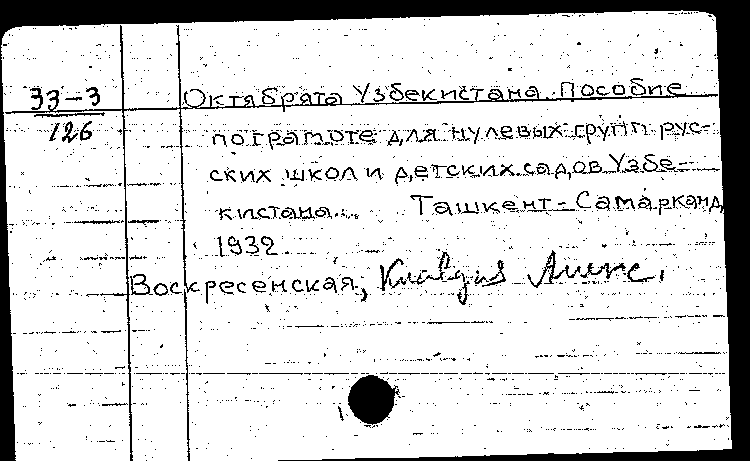 33-3
126
Октябрята Узбекистана. Пособие
по грамоте для нулевых групп рус-
ских школ и детских садов Узбе-
кистана... Ташкент-Самарканд,
1932.
Воскресенская, Клавдия Алекс.